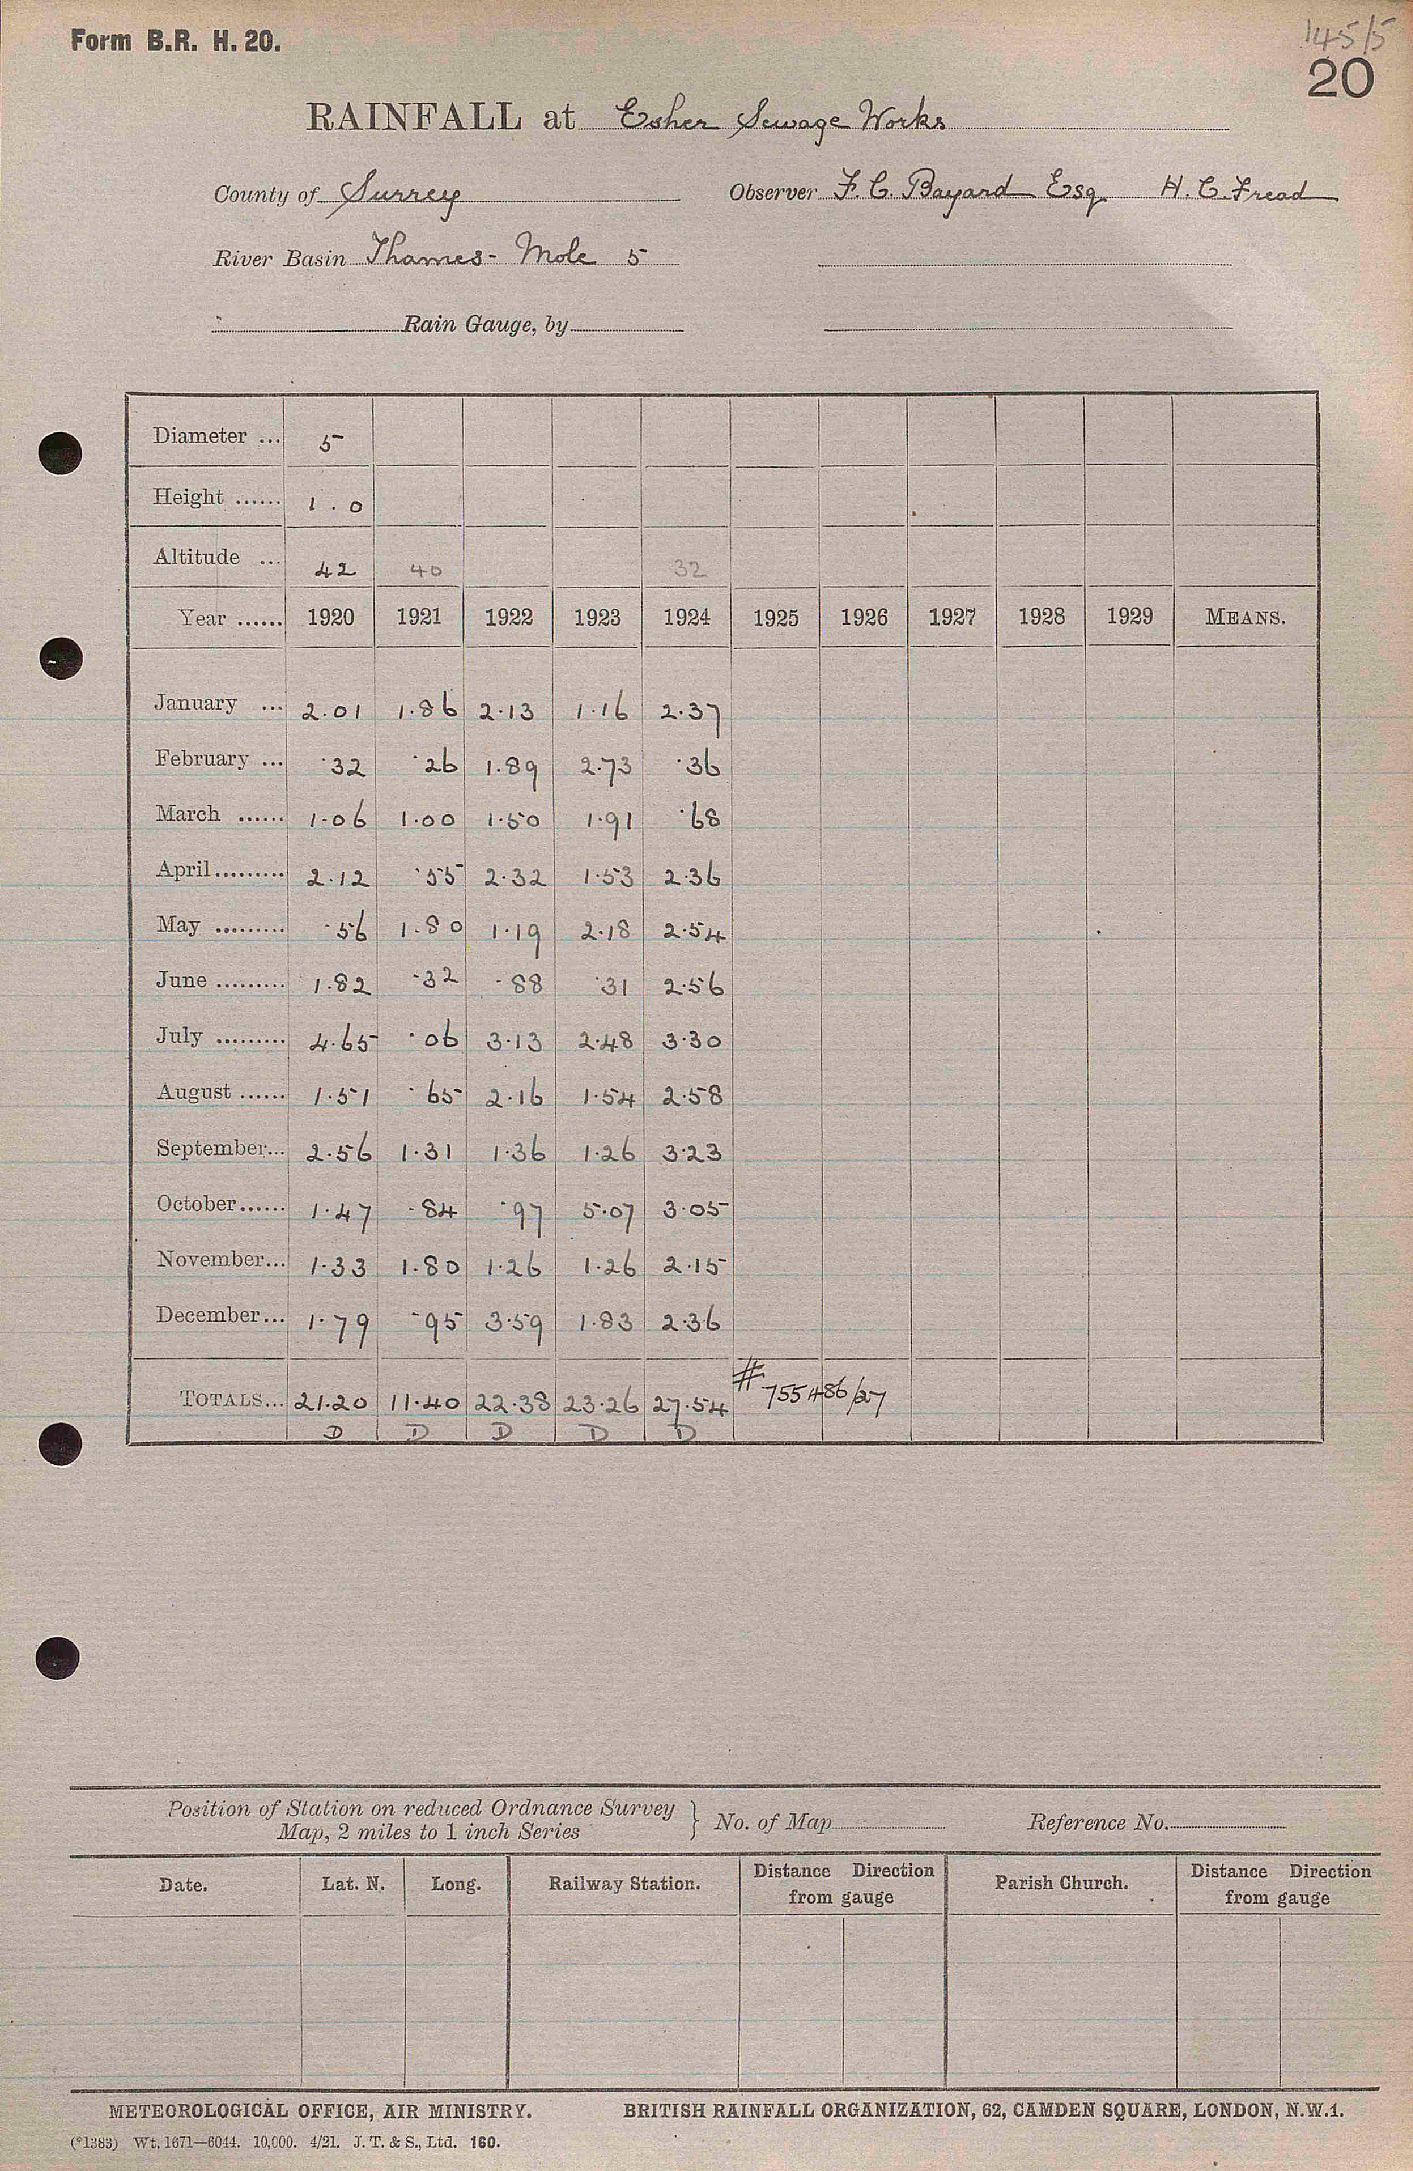 Form B.R. H. 20.
145/5
20
RAINFALL at Esher Sewage Works
County of Surrey Observer F. C. Bayard Esq H. C. Fread
River Basin Thames - Mole 5
Rain Gauge, by
Diameter ... 5
Height ...... 1.0
Altitude ... 42 40 32
Year ...... 1920 1921 1922 1923 1924 1925 1926 1927 1928 1929 MEANS.
January ... 2.01 1.86 2.13 1.16 2.37
February ... .32 .26 1.89 2.73 .36
March ...... 1.06 1.00 1.50 1.91 .68
April ......... 2.12 .55 2.32 1.53 2.36
May ......... .56 1.80 1.19 2.18 2.54
June ......... 1.82 .32 .88 .31 2.56
July ......... 4.65 .06 3.13 2.48 3.30
August ...... 1.51 .65 2.16 1.54 2.58
September... 2.56 1.31 1.36 1.26 3.23
October...... 1.47 .84 .97 5.07 3.05
November... 1.33 1.80 1.26 1.26 2.15
December... 1.79 .95 3.59 1.83 2.36
TOTALS... 21.20 11.40 22.38 23.26 27.54 # 755486/27
D D D D D
Position of Station on reduced Ordnance Survey
Map, 2 miles to 1 inch Series } No. of Map Reference No.
Date. Lat. N. Long. Railway Station. Distance Direction from gauge Parish Church. Distance Direction from gauge
METEOROLOGICAL OFFICE, AIR MINISTRY. BRITISH RAINFALL ORGANIZATION, 62, CAMDEN SQUARE, LONDON, N.W.1.
(*1383) Wt. 1671—6044. 10,000. 4/21. J. T. & S., Ltd. 160.